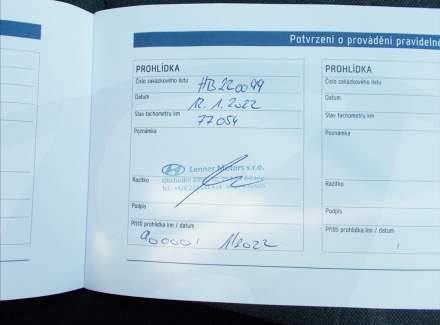 Potvrzení o provádění pravidelné
PROHLÍDKA
Číslo zakázkového listu
HB220099
Datum
12.1.2022
Stav tachometru km
77054
Poznámka
Lenner Motors s.r.o.
Razítko
Podpis
Příští prohlídka km / datum
90000 / 1/2022
PROHLÍDKA
Číslo zakázkového listu
Datum
Stav tachometru km
Poznámka
Razítko
Podpis
Příští prohlídka km / datum
/